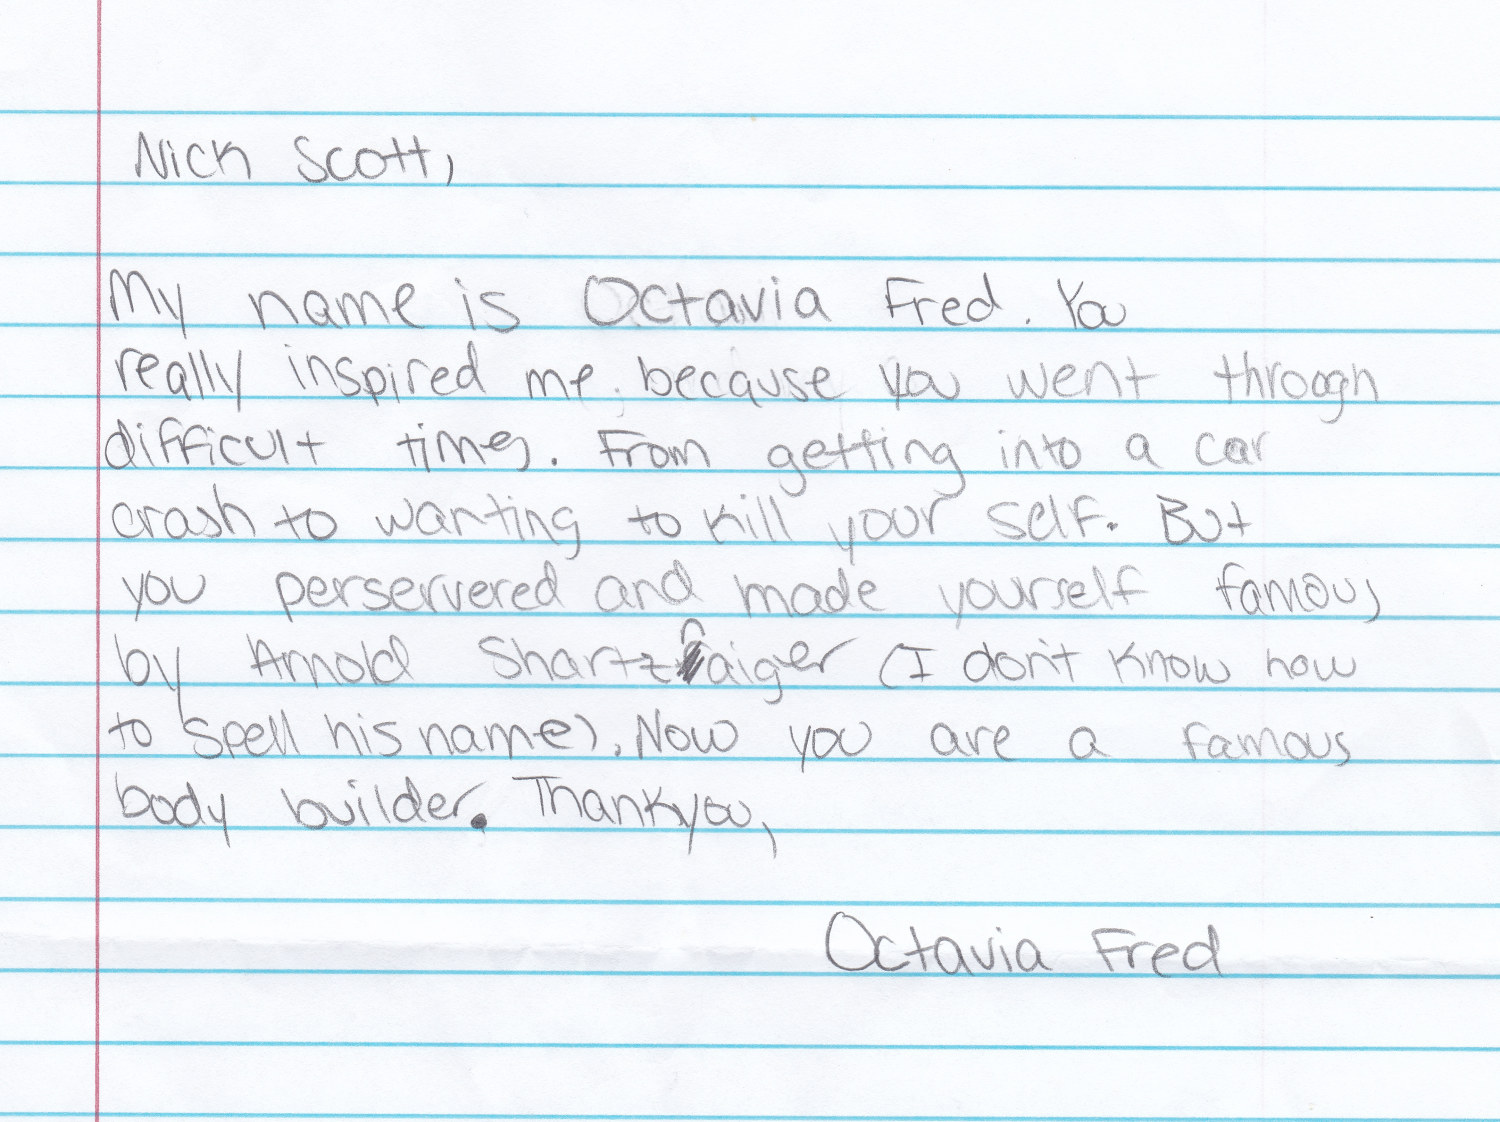 Nick Scott,
My name is Octavia Fred. You
really inspired me because you went through
difficult times. From getting into a car
crash to wanting to kill your self. But
you perservered and made yourself famous
by Arnold Shartznaiger (I don't know how
to spell his name). Now you are a famous
body builder. Thankyou,
Octavia Fred